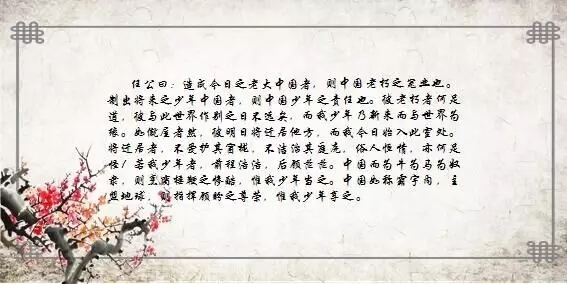 任公曰：造成今日之老大中国者，则中国老朽之冤业也。
制出将来之少年中国者，则中国少年之责任也。彼老朽者何足
道，彼与此世界作别之日不远矣，而我少年乃新来而与世界为
缘。如僦屋者然，彼明日将迁居他方，而我今日始入此室处。
将迁居者，不爱护其窗栊，不洁治其庭庑，俗人恒情，亦何足
怪！若我少年者，前程浩浩，后顾茫茫。中国而为牛为马为奴
隶，则烹脔棰鞭之惨酷，惟我少年当之。中国如称霸宇内，主
盟地球，则指挥顾盼之尊荣，惟我少年享之。